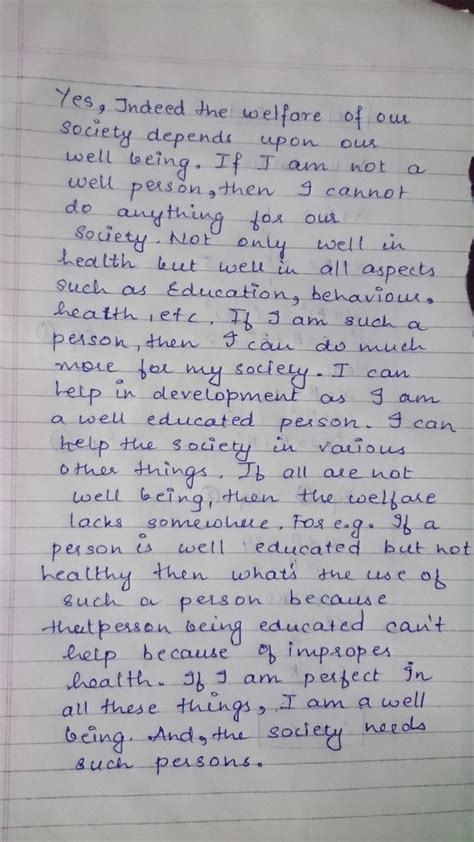 Yes, Indeed the welfare of our
society depends upon our
well being. If I am not a
well person, then I cannot
do anything for our
society. Not only well in
health but well in all aspects
such as Education, behaviour,
health, etc. If I am such a
person, then I can do much
more for my society. I can
help in development as I am
a well educated person. I can
help the society in various
other things. If all are not
well being, then the welfare
lacks somewhere. For e.g. If a
person is well educated but not
healthy then what's the use of
such a person because
that person being educated can't
help because of improper
health. If I am perfect in
all these things, I am a well
being. And, the society needs
such persons.